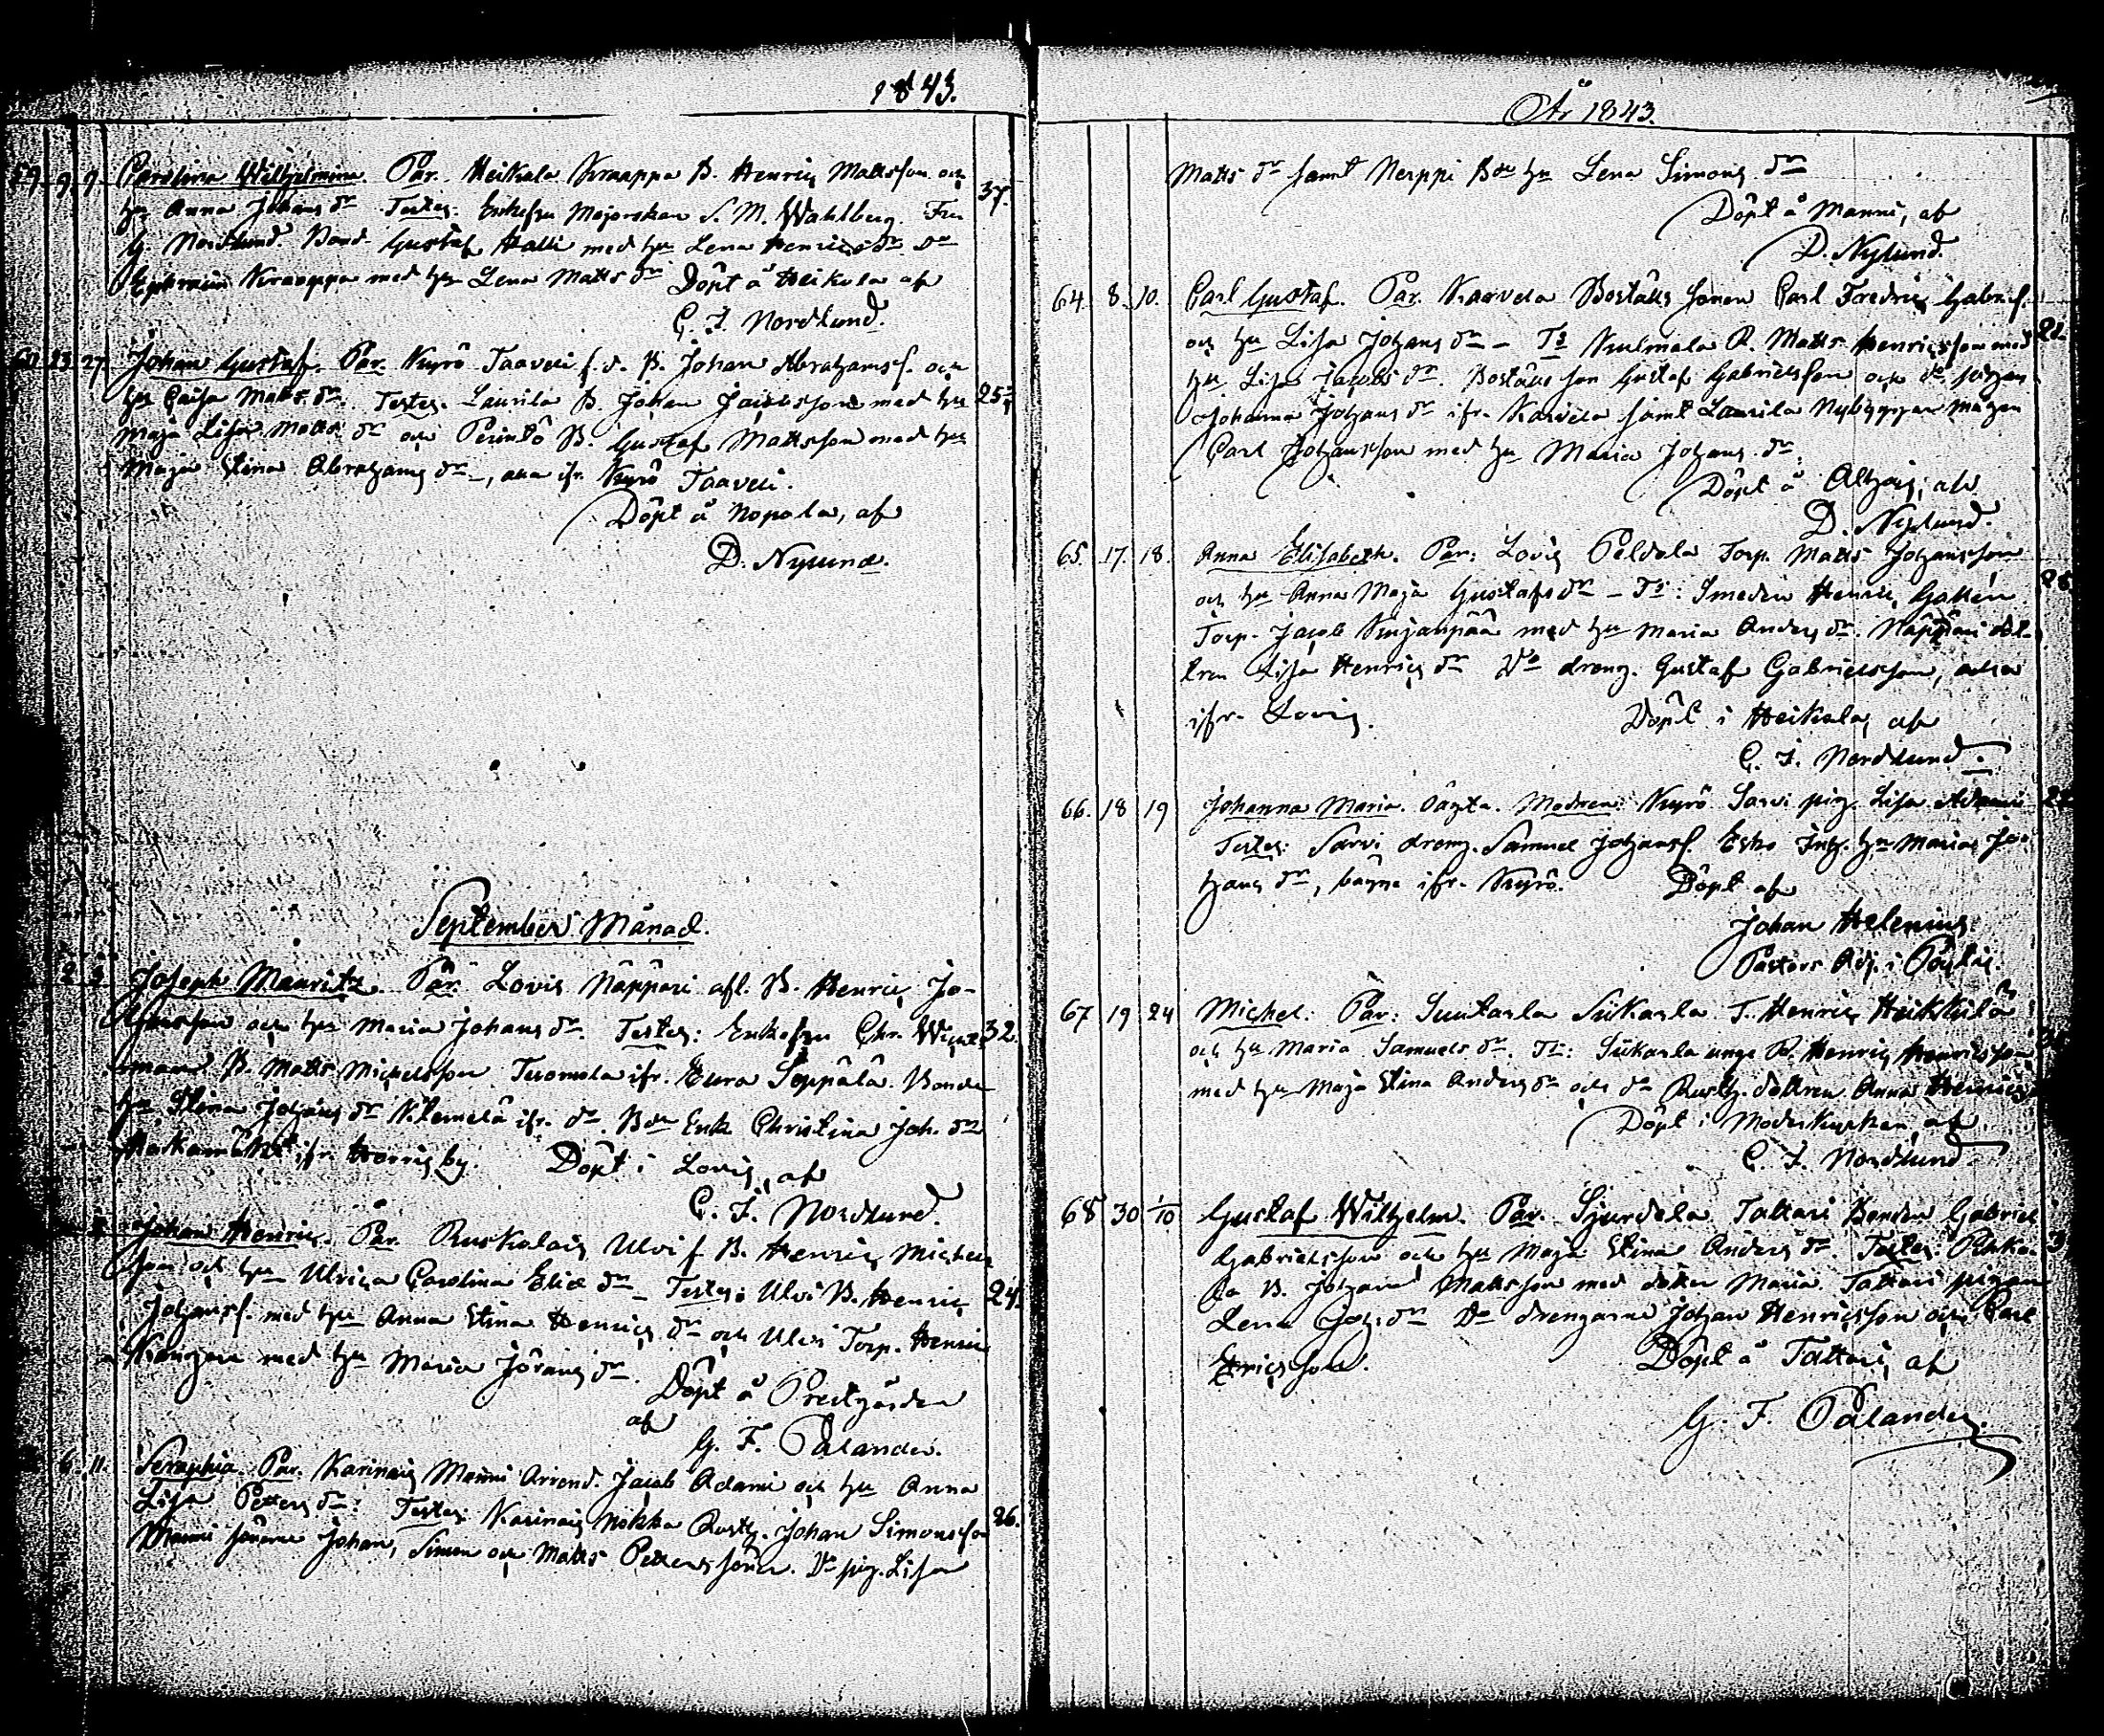 1843.
59 9 9 Carolina Wilhelmina. Par. Heikola Kraappa B. Henric Mattsson och
hu Anna Johans dr Testes: Enkefru Majorskan S. M. Wahlberg. Fru 37.
G Nordlund. Bond. Gustaf Halli med hu Lena Henrics dr Do
Ephraim Kraappa med hu Lena Matts dr Döpt å Heikola af
C. F. Nordlund.
60 23 27 Johan Gustaf. Par. Kyrö Taaveli f. d. B. Johan Abrahamss. och
hu Caisa Matts dr. Testes. Laurila B. Johan Jacobsson med hu 25
Maja Lisa Matts dr och Perintö B. Gustaf Mattsson med hu
Maja Stina Abrahams dr, alla ifr. Kyrö Taaveli.
Döpt å Nopola, af
D. Nylund.
September Månad.
2 3 Joseph Mauritz. Par. Lovis Näppäri afl. B. Henric Jo-
hansson och hu Maria Johans dr. Testes: Enkefru Chr. 32.
man B. Matts Michelsson Tuomola ifr. Eura Seppälä Bonde
hu Stina Johans dr ifr. do. Bde Enk. Christina Joh. dr
ifr. by. Döpt i Lovis, af
C. F. Nordlund.
Johan Henric. Par. Ruskolais Ulvi f B. Henric Michels
son och hu Ulrica Carolina Eliæ dr Testes: Ulvi B. Henric 24.
Johanss. med hu Anna Stina Henrics dr och Ulvi Torp. Henric
Kangas med hu Maria Jörans dr.
Döpt å Prestgården
af
G. F. Pålander.
6 11. Seraphia. Par. Karinais Manni Arrend. Jacob Adami och hu Anna
Lisa Petters dr: Testes: Karinais Nokka Rusth. Johan Simonsson 26.
Manni sönerne Johan, Simon och Matts Petterssöner. Do pig. Lisa
År 1843.
Matts dr samt Nerppi Bde hu Lena Simons dr
Döpt å Manni, af
D. Nylund.
64. 8. 10. Carl Gustaf. Par. Karvela Boställs sonen Carl Fredric Gabriels.
och hu Lisa Johans dr - Ts Kulmala R. Matts Henricsson med 21.
hu Lisa Jacobs dr. Boställs son Gustaf Gabrielsson och do pigan
Johanna Johans dr ifr. Karvela samt Laurila Nybyggar mågen
Carl Johansson med hu Maria Johans dr.
Döpt å Alhais, af
D. Nylund.
65. 17. 18. Anna Elisabeth. Par: Lovis Peldola Torp. Matts Johansson
och hu Anna Maja Gustafs dr - Ts: Smeden Henric Gallén 28
Torp. Jacob Kujanpää med hu Maria Anders dr. Näppäri dot-
tren Lisa Henrics dr Do dreng. Gustaf Gabrielsson, alla
ifr. Lovis. Döpt i Heikola, af
C. F. Nordlund.
66. 18 19 Johanna Maria. Oägta. Modren: Kyrö Sarvi pig. Lisa Adami
Testes: Sarvi dreng. Samuel Johanss. Esko Inh. hu Maria Jo-
hans dr, bägge ifr. Kyrö. Döpt af
Johan Helenius
Pastors Adj. i Pöytis.
67 19 24 Michel: Par: Suutarla Sukarla T. Henric Heikkilä
och hu Maria Samuels dr. Ts: Sukarla unge B. Henric Henricsson
med hu Maja Stina Anders dr och do Rusth. dottren Anna Henrics
Döpt i Moderkyrkan, af
C. F. Nordlund.
68 30 1/10 Gustaf Wilhelm. Par. Sjurdela Tattari Bonden Gabriel
Gabrielsson och hu Maja Stina Anders dr. Testes:
B. Johan Mattsson med dotter Maria. Tattari pigan
Lena Joh. dr Do drengarne Johan Henricsson och Carl
Ericsson. Döpt å Tattari, af
G. F. Pålander.